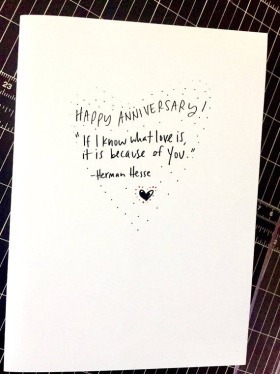 HAPPY ANNIVERSARY!
"If I know what love is,
it is because of you."
-Herman Hesse
23